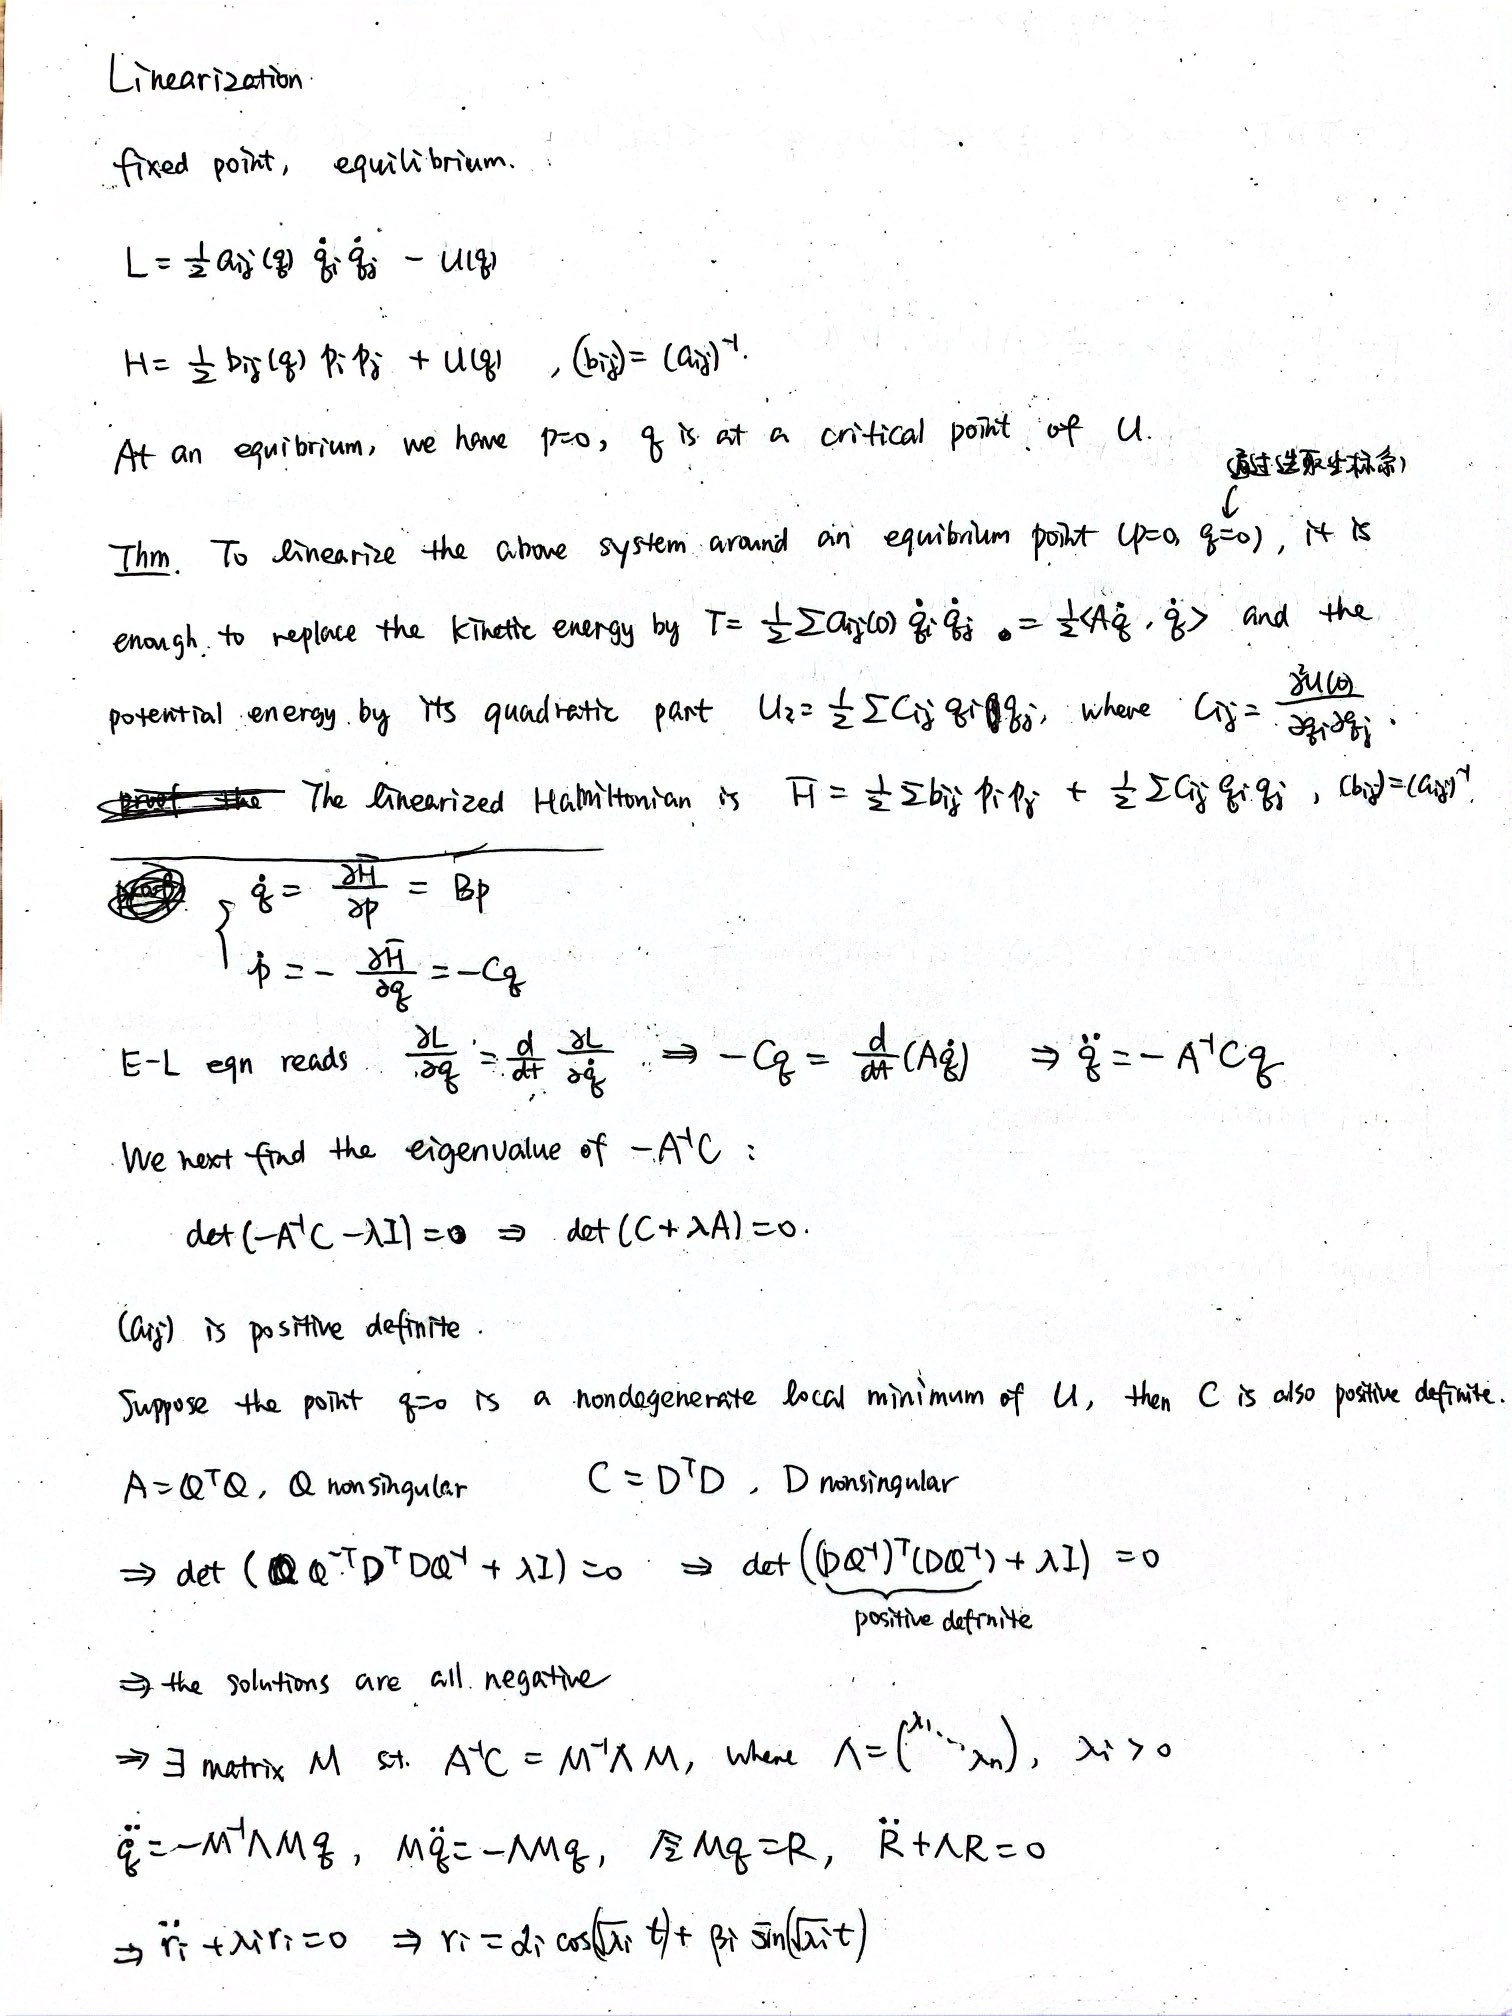 Linearization.
fixed point, equilibrium.
L = ½ aij(q) q̇i q̇j − U(q)
H = ½ bij(q) pi pj + U(q) , (bij) = (aij)⁻¹.
At an equibrium, we have p=0, q is at a critical point of U.
(通过选取坐标系)
Thm. To linearize the above system around an equibrium point (p=0, q=0), it is
enough to replace the kinetic energy by T = ½ Σ aij(0) q̇i q̇j = ½<Aq̇, q̇> and the
potential energy by its quadratic part U₂ = ½ Σ Cij qi qj, where Cij = ∂²U(0)/∂qi∂qj .
The linearized Hamiltonian is H̄ = ½ Σ bij pi pj + ½ Σ Cij qi qj , (bij) = (aij)⁻¹
{ q̇ = ∂H̄/∂p = Bp
ṗ = − ∂H̄/∂q = −Cq
E-L eqn reads ∂L/∂q = d/dt ∂L/∂q̇ ⇒ −Cq = d/dt (Aq̇) ⇒ q̈ = − A⁻¹Cq
We next find the eigenvalue of −A⁻¹C :
det(−A⁻¹C − λI) = 0 ⇒ det(C + λA) = 0.
(aij) is positive definite.
Suppose the point q=0 is a nondegenerate local minimum of U, then C is also positive definite.
A = QᵀQ, Q nonsingular C = DᵀD , D nonsingular
⇒ det ( Q⁻ᵀDᵀDQ⁻¹ + λI) = 0 ⇒ det ((DQ⁻¹)ᵀ(DQ⁻¹) + λI) = 0
positive definite
⇒ the solutions are all negative
⇒ ∃ matrix M s.t. A⁻¹C = M⁻¹ΛM, where Λ = (λ₁ ⋱ λn), λi > 0
q̈ = −M⁻¹ΛMq, Mq̈ = −ΛMq, 令 Mq = R, R̈ + ΛR = 0
⇒ r̈i + λi ri = 0 ⇒ ri = αi cos(√λi t) + βi sin(√λi t)